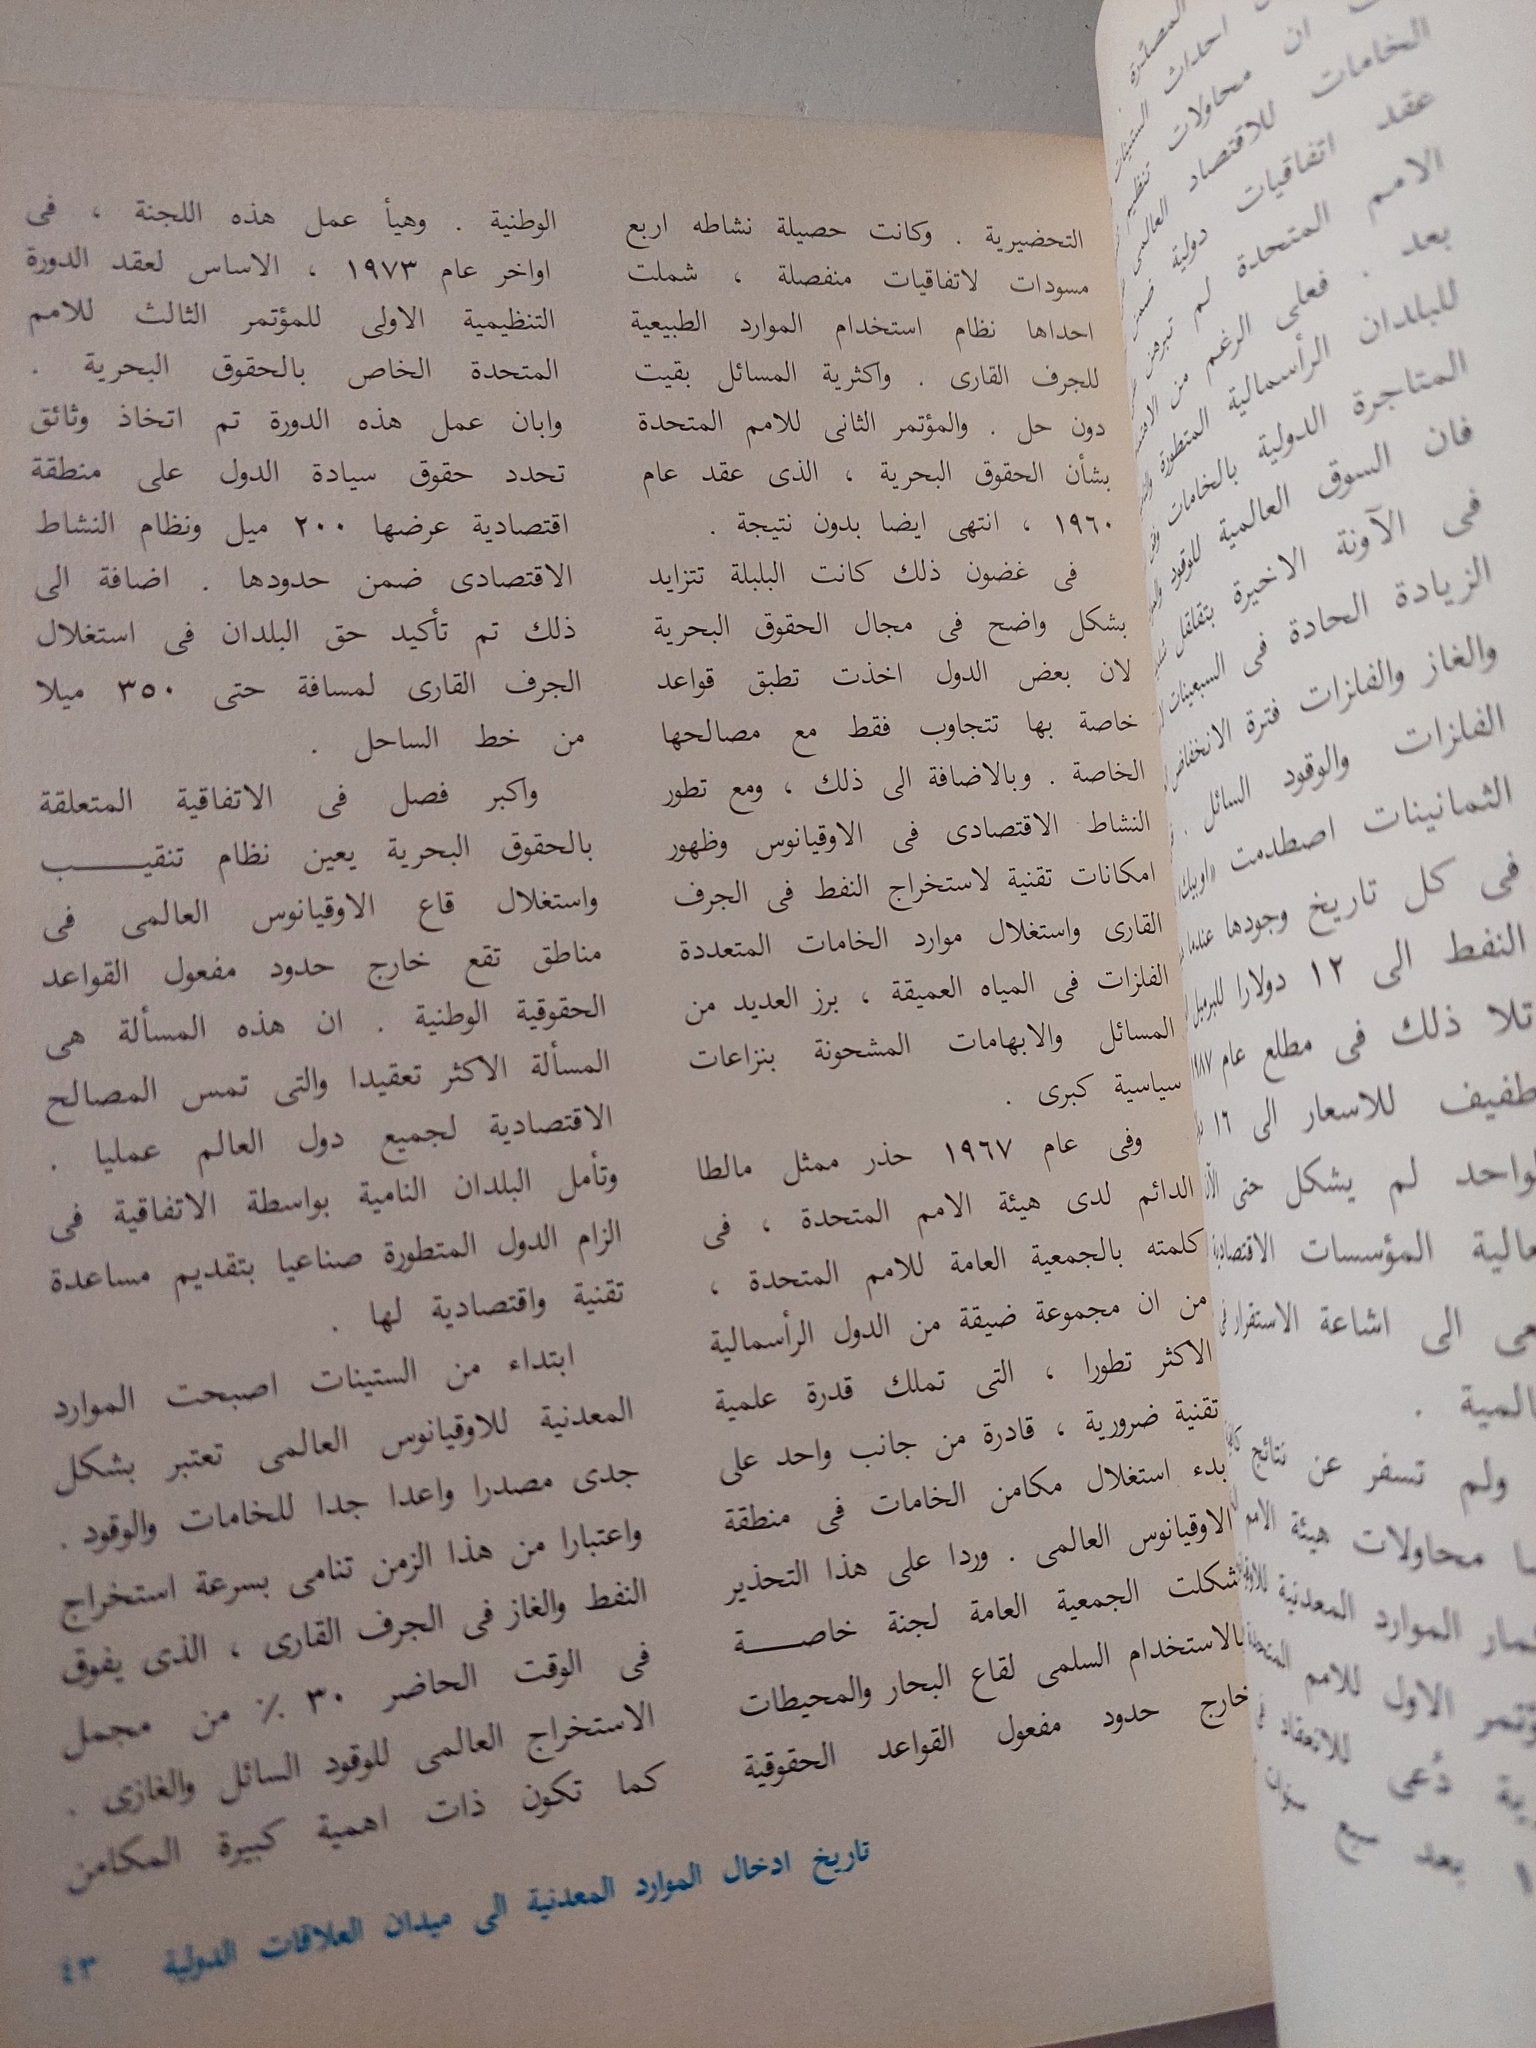 التحضيرية . وكانت حصيلة نشاطه اربع
مسودات لاتفاقيات منفصلة ، شملت
احداها نظام استخدام الموارد الطبيعية
للجرف القارى . واكثرية المسائل بقيت
دون حل . والمؤتمر الثانى للامم المتحدة
بشأن الحقوق البحرية ، الذى عقد عام
١٩٦٠ ، انتهى ايضا بدون نتيجة .
فى غضون ذلك كانت البلبلة تتزايد
بشكل واضح فى مجال الحقوق البحرية
لان بعض الدول اخذت تطبق قواعد
خاصة بها تتجاوب فقط مع مصالحها
الخاصة . وبالاضافة الى ذلك ، ومع تطور
النشاط الاقتصادى فى الاوقيانوس وظهور
امكانات تقنية لاستخراج النفط فى الجرف
القارى واستغلال موارد الخامات المتعددة
الفلزات فى المياه العميقة ، برز العديد من
المسائل والابهامات المشحونة بنزاعات
سياسية كبرى .
وفى عام ١٩٦٧ حذر ممثل مالطا
الدائم لدى هيئة الامم المتحدة ، فى
كلمته بالجمعية العامة للامم المتحدة ،
من ان مجموعة ضيقة من الدول الرأسمالية
الاكثر تطورا ، التى تملك قدرة علمية
تقنية ضرورية ، قادرة من جانب واحد على
بدء استغلال مكامن الخامات فى منطقة
الاوقيانوس العالمى . وردا على هذا التحذير
شكلت الجمعية العامة لجنة خاصـــة
بالاستخدام السلمى لقاع البحار والمحيطات
خارج حدود مفعول القواعد الحقوقية
الوطنية . وهيأ عمل هذه اللجنة ، فى
اواخر عام ١٩٧٣ ، الاساس لعقد الدورة
التنظيمية الاولى للمؤتمر الثالث للامم
المتحدة الخاص بالحقوق البحرية .
وابان عمل هذه الدورة تم اتخاذ وثائق
تحدد حقوق سيادة الدول على منطقة
اقتصادية عرضها ٢٠٠ ميل ونظام النشاط
الاقتصادى ضمن حدودها . اضافة الى
ذلك تم تأكيد حق البلدان فى استغلال
الجرف القارى لمسافة حتى ٣٥٠ ميلا
من خط الساحل .
واكبر فصل فى الاتفاقية المتعلقة
بالحقوق البحرية يعين نظام تنقيـــب
واستغلال قاع الاوقيانوس العالمى فى
مناطق تقع خارج حدود مفعول القواعد
الحقوقية الوطنية . ان هذه المسألة هى
المسألة الاكثر تعقيدا والتى تمس المصالح
الاقتصادية لجميع دول العالم عمليا .
وتأمل البلدان النامية بواسطة الاتفاقية فى
الزام الدول المتطورة صناعيا بتقديم مساعدة
تقنية واقتصادية لها .
ابتداء من الستينات اصبحت الموارد
المعدنية للاوقيانوس العالمى تعتبر بشكل
جدى مصدرا واعدا جدا للخامات والوقود .
واعتبارا من هذا الزمن تنامى بسرعة استخراج
النفط والغاز فى الجرف القارى ، الذى يفوق
فى الوقت الحاضر ٣٠ ٪ من مجمل
الاستخراج العالمى للوقود السائل والغازى .
كما تكون ذات اهمية كبيرة المكامن
تاريخ ادخال الموارد المعدنية الى ميدان العلاقات الدولية ٤٣
ان محاولات تنظيم
الخامات للاقتصاد العالمى
عقد اتفاقيات دولية
الامم المتحدة لم تبرهن
بعد . فعلى الرغم من
للبلدان الرأسمالية المتطورة
المتاجرة الدولية بالخامات
فان السوق العالمية للوقود
فى الآونة الاخيرة بتقلقل
الزيادة الحادة فى السبعينات
والغاز والفلزات فترة الانخفاض
الفلزات والوقود السائل .
الثمانينات اصطدمت «اوبيك
فى كل تاريخ وجودها عندما
النفط الى ١٢ دولارا للبرميل
تلا ذلك فى مطلع عام
طفيف للاسعار الى ١٦
لم يشكل حتى
المؤسسات
الى اشاعة الاستقرار فى
ولم تسفر عن نتائج
محاولات هيئة الامم
الموارد المعدنية
الاول للامم
دُعى للانعقاد
بعد سبع